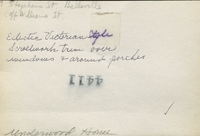 Stephens St. Belleville
Eclectic Victorian Style
Scrollwork trim over
windows & around porches
4411
Underwood House